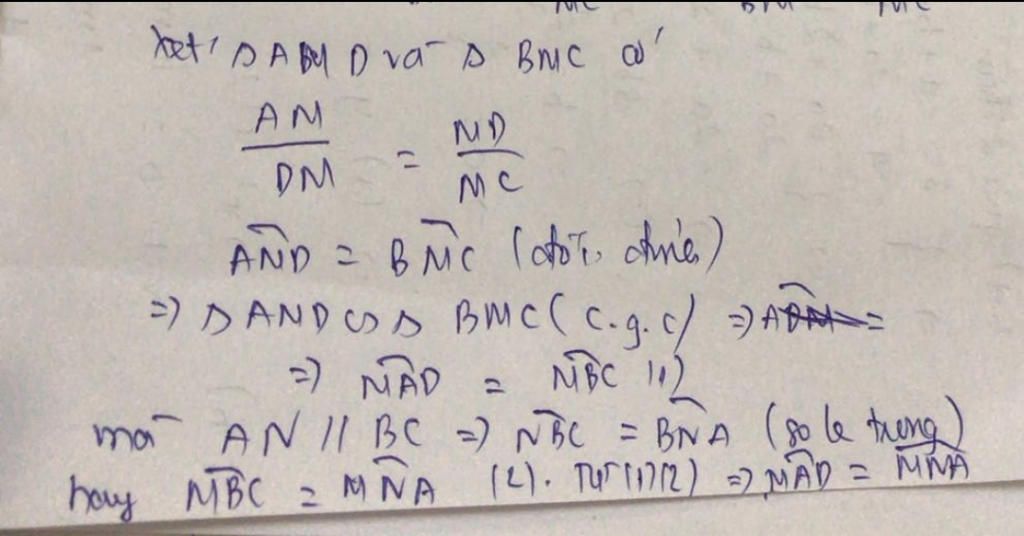 Xét ΔAMD và Δ BMC có
AM/DM = MD/MC
AMD = BMC (đối đỉnh)
=> Δ AMD ∽ Δ BMC (c.g.c) =>
=> MAD = MBC (1)
mà AN // BC => NBC = BNA (so le trong)
hay MBC = MNA (2). Từ (1)(2) => MAD = MNA